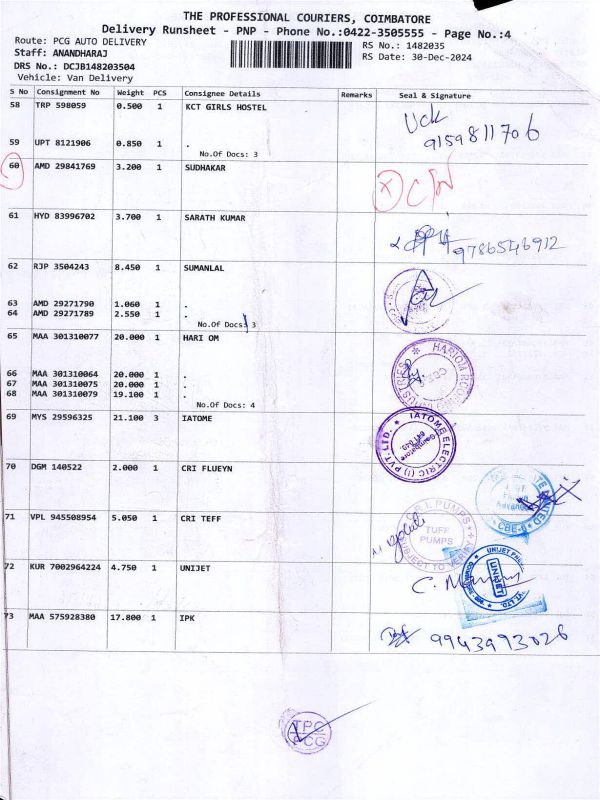 THE PROFESSIONAL COURIERS, COIMBATORE
Delivery Runsheet - PNP - Phone No.:0422-3505555 - Page No.:4
Route: PCG AUTO DELIVERY
RS No.: 1482035
Staff: ANANDHARAJ
RS Date: 30-Dec-2024
DRS No.: DCJB148203504
Vehicle: Van Delivery
S No Consignment No Weight PCS Consignee Details Remarks Seal & Signature
58 TRP 598059 0.500 1 KCT GIRLS HOSTEL
59 UPT 8121906 0.850 1 .
9159811706
No.Of Docs: 3
60 AMD 29841769 3.200 1 SUDHAKAR
61 HYD 83996702 3.700 1 SARATH KUMAR
9786546912
62 RJP 3504243 8.450 1 SUMANLAL
63 AMD 29271790 1.060 1 .
64 AMD 29271789 2.550 1 .
No.Of Docs: 3
65 MAA 301310077 20.000 1 HARI OM
66 MAA 301310064 20.000 1 .
67 MAA 301310075 20.000 1 .
68 MAA 301310079 19.100 1 .
No.Of Docs: 4
69 MYS 29596325 21.100 3 IATOME
IATOME ELECTRIC (I) PVT. LTD.
70 DGM 140522 2.000 1 CRI FLUEYN
CBE-6
71 VPL 945508954 5.050 1 CRI TEFF
C.R.I. PUMPS
TUFF
PUMPS
72 KUR 7002964224 4.750 1 UNIJET
UNIJET
73 MAA 575928380 17.800 1 IPK
9943993026
TPC
PCG